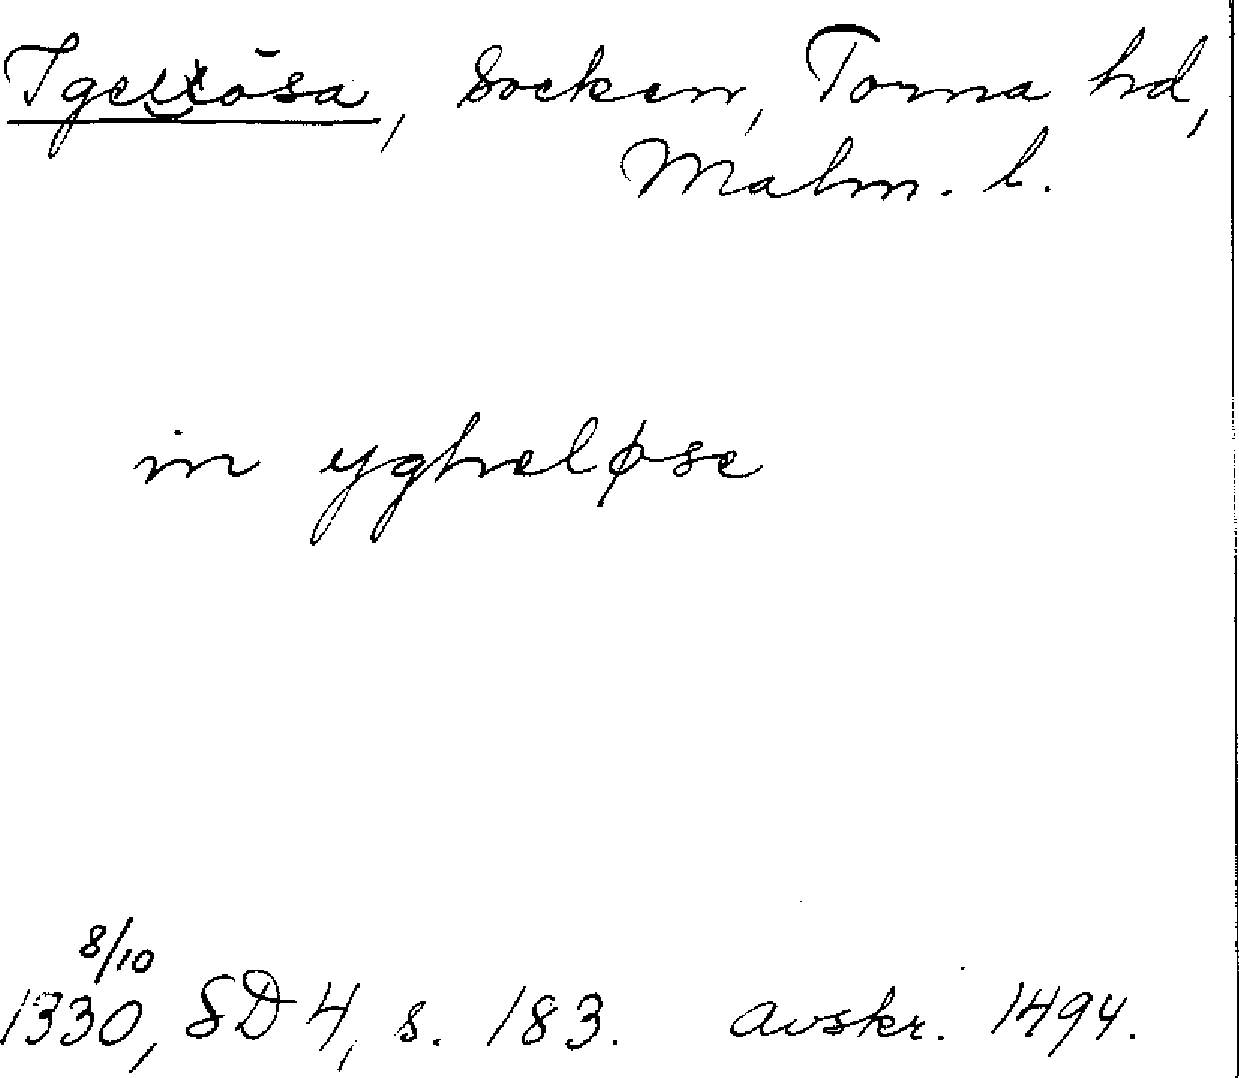 Igelösa, Socken, Torna hd,
Malm. l.
in ygheløse
8/10
1330, SD 4, s. 183. avskr. 1494.